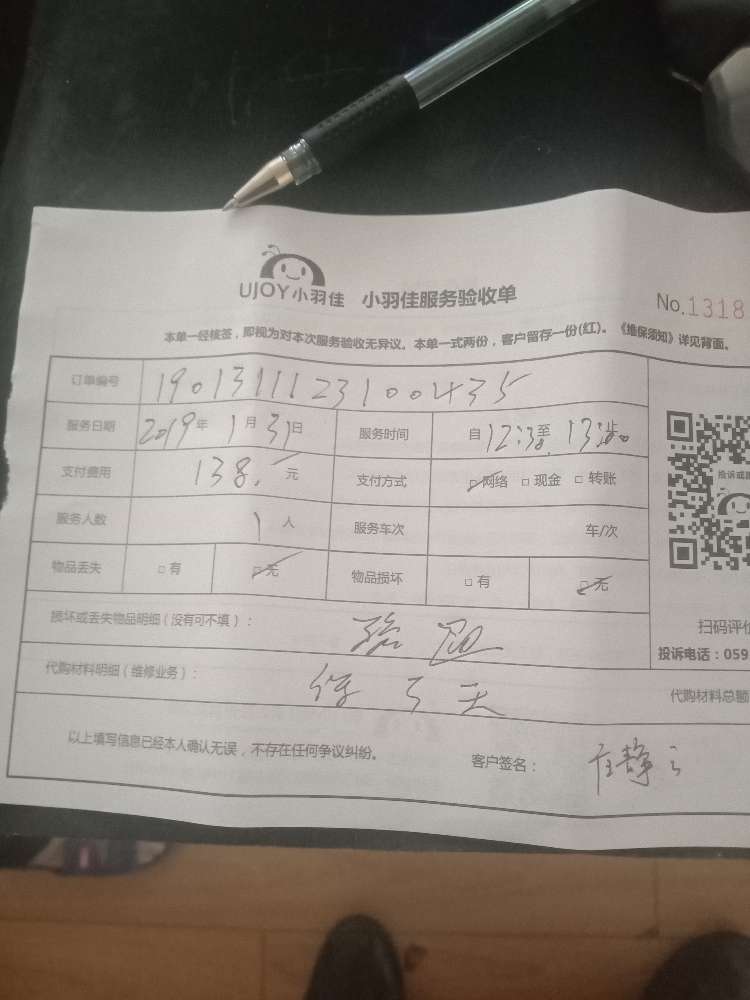 UJOY小羽佳 小羽佳服务验收单
No.1318
本单一经核签，即视为对本次服务验收无异议。本单一式两份，客户留存一份(红)。《维保须知》详见背面。
订单编号 1901311123100435
服务日期 2019年1月31日 服务时间 自12:30至13:00止
支付费用 138.元 支付方式 □网络 □现金 □转账
服务人数 1人 服务车次 车/次
物品丢失 □有 □无 物品损坏 □有 □无
损坏或丢失物品明细（没有可不填）：
扫码评价
投诉电话：059
代购材料明细（维修业务）：
代购材料总额
以上填写信息已经本人确认无误，不存在任何争议纠纷。 客户签名：